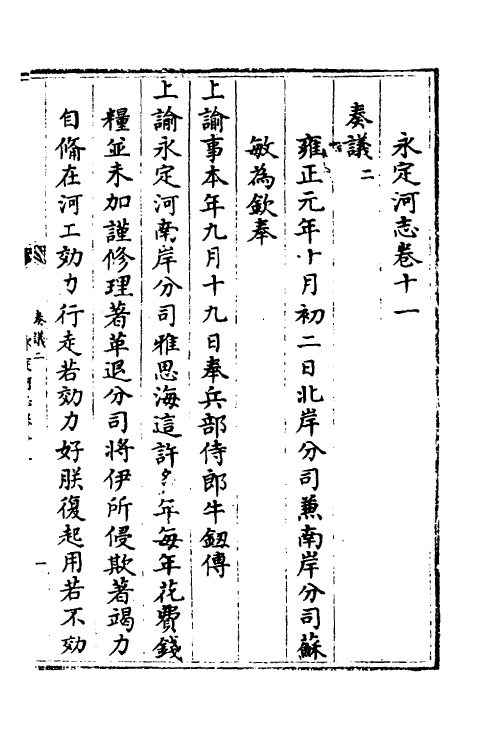 永定河志卷十一
奏議二
雍正元年十月初二日北岸分司兼南岸分司蘇
敏為欽奉
上諭事本年九月十九日奉兵部侍郎牛鈕傳
上諭永定河南岸分司雅思海這許多年每年花費錢
糧並未加謹修理著革退分司將伊所侵欺著竭力
自備在河工効力行走若効力好朕復起用若不効
奏議二
一